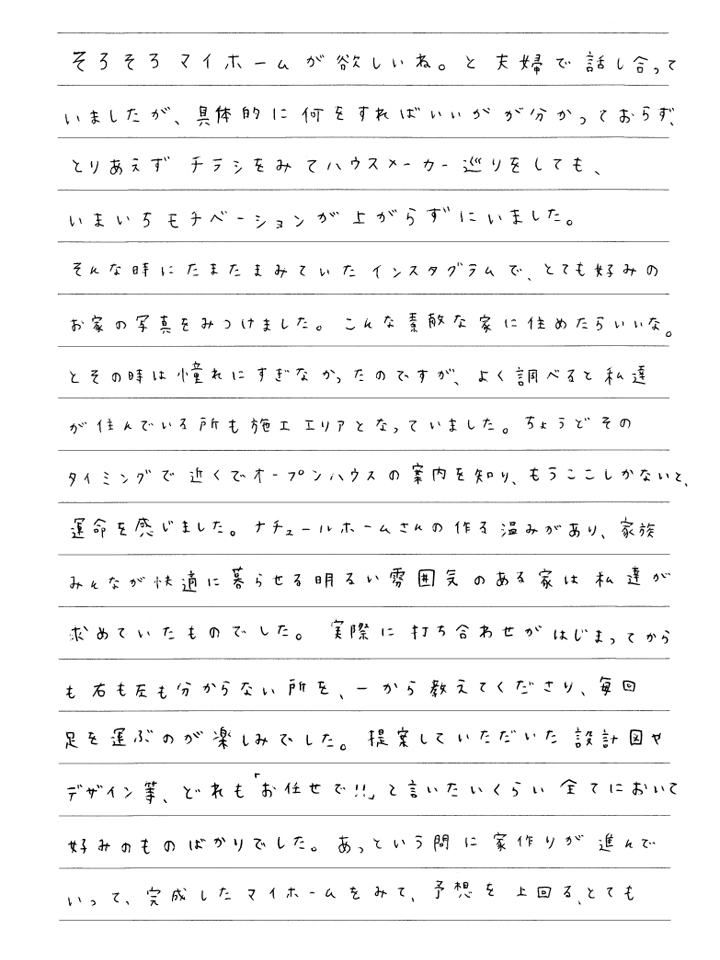 そろそろマイホームが欲しいね。と夫婦で話し合って
いましたが、具体的に何をすればいいかが分かっておらず、
とりあえずチラシをみてハウスメーカー巡りをしても、
いまいちモチベーションが上がらずにいました。
そんな時にたまたまみていたインスタグラムで、とても好みの
お家の写真をみつけました。こんな素敵な家に住めたらいいな。
とその時は憧れにすぎなかったのですが、よく調べると私達
が住んでいる所も施工エリアとなっていました。ちょうどその
タイミングで近くでオープンハウスの案内を知り、もうここしかないと、
運命を感じました。ナチュールホームさんの作る温みがあり、家族
みんなが快適に暮らせる明るい雰囲気のある家は私達が
求めていたものでした。実際に打ち合わせがはじまってから
も右も左も分からない所を、一から教えてくださり、毎回
足を運ぶのが楽しみでした。提案していただいた設計図や
デザイン等、どれも「お任せで!!」と言いたいくらい全てにおいて
好みのものばかりでした。あっという間に家作りが進んで
いって、完成したマイホームをみて、予想を上回る、とても